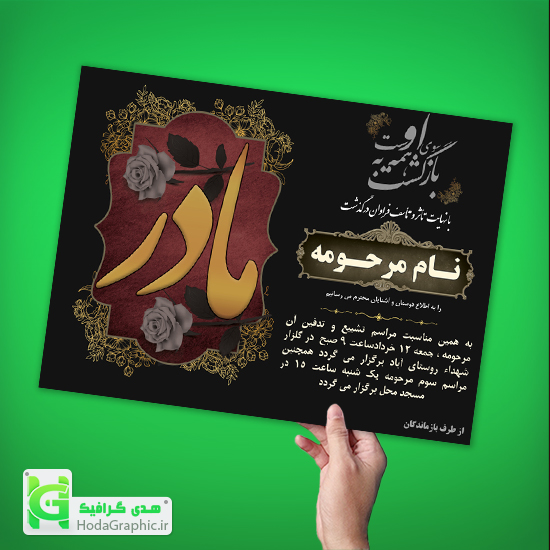 بازگشت همه به سوی اوست
با نهایت تاثر و تاسف فراوان درگذشت
مادر
نام مرحومه
را به اطلاع دوستان و آشنایان محترم می رسانیم
به همین مناسبت مراسم تشییع و تدفین آن
مرحومه ، جمعه ۱۲ خردادساعت ۹ صبح در گلزار
شهداء روستای آباد برگزار می گردد همچنین
مراسم سوم مرحومه یک شنبه ساعت ۱۵ در
مسجد محل برگزار می گردد
از طرف بازماندگان
هدی گرافیک
HodaGraphic.ir